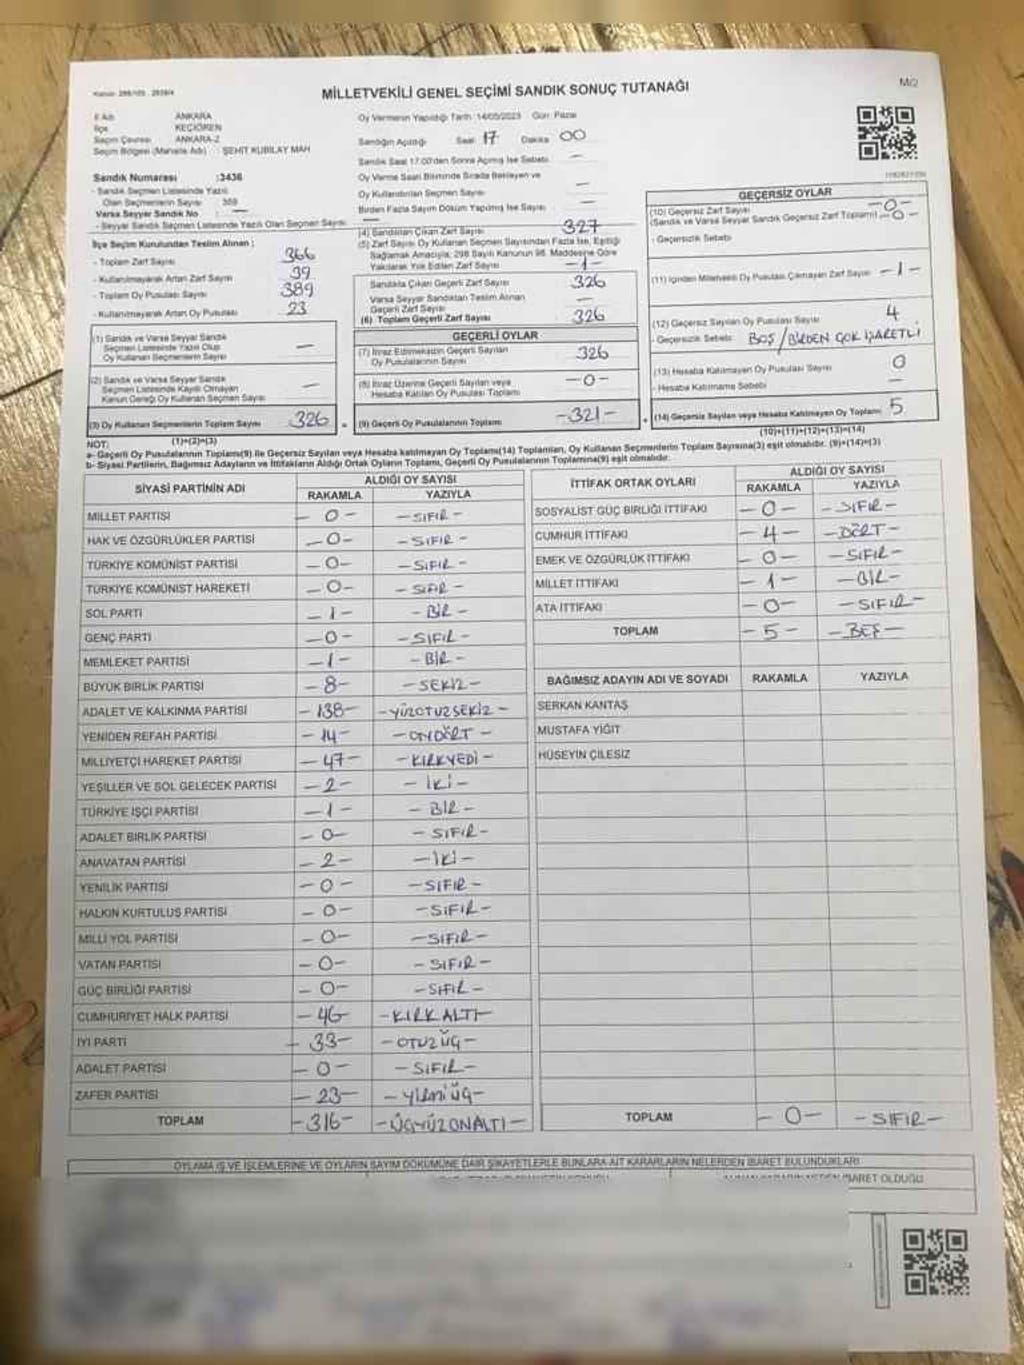 MİLLETVEKİLİ GENEL SEÇİMİ SANDIK SONUÇ TUTANAĞI
M/2
İl Adı : ANKARA
İlçe : KEÇİÖREN
Seçim Çevresi : ANKARA-2
Seçim Bölgesi (Mahalle Adı) : ŞEHİT KUBİLAY MAH
Sandık Numarası :3436
- Sandık Seçmen Listesinde Yazılı
Olan Seçmenlerin Sayısı
Varsa Seyyar Sandık No : —
- Seyyar Sandık Seçmen Listesinde Yazılı Olan Seçmen Sayısı : —
İlçe Seçim Kurulundan Teslim Alınan :
- Toplam Zarf Sayısı 366
- Kullanılmayarak Artan Zarf Sayısı 39
- Toplam Oy Pusulası Sayısı 389
- Kullanılmayarak Artan Oy Pusulası 23
(1) Sandık ve Varsa Seyyar Sandık
Seçmen Listesinde Yazılı Olup
Oy Kullanan Seçmenlerin Sayısı —
(2) Sandık ve Varsa Seyyar Sandık
Seçmen Listesinde Kayıtlı Olmayan
Kanun Gereği Oy Kullanan Seçmen Sayısı —
(3) Oy Kullanan Seçmenlerin Toplam Sayısı 326
(1)+(2)=(3)
Oy Vermenin Yapıldığı Tarih :14/05/2023 Gün: Pazar
Sandığın Açıldığı Saat 17 Dakika 00
Sandık Saat 17:00'den Sonra Açılmış İse Sebebi —
Oy Verme Saati Bitiminde Sırada Bekleyen ve
Oy Kullandırılan Seçmen Sayısı —
Birden Fazla Sayım Döküm Yapılmış İse Sayısı —
(4) Sandıktan Çıkan Zarf Sayısı 327
(5) Zarf Sayısı Oy Kullanan Seçmen Sayısından Fazla İse, Eşitliği
Sağlamak Amacıyla; 298 Sayılı Kanunun 98. Maddesine Göre
Yakılarak Yok Edilen Zarf Sayısı -1-
Sandıkta Çıkan Geçerli Zarf Sayısı 326
Varsa Seyyar Sandıktan Teslim Alınan
Geçerli Zarf Sayısı —
(6) Toplam Geçerli Zarf Sayısı 326
GEÇERLİ OYLAR
(7) İtiraz Edilmeksizin Geçerli Sayılan
Oy Pusulalarının Sayısı 326
(8) İtiraz Üzerine Geçerli Sayılan veya
Hesaba Katılan Oy Pusulası Toplamı -0-
(9) Geçerli Oy Pusulalarının Toplamı -321-
GEÇERSİZ OYLAR
(10) Geçersiz Zarf Sayısı -0-
(Sandık ve Varsa Seyyar Sandık Geçersiz Zarf Toplamı) -0-
- Geçersizlik Sebebi
(11) İçinden Milletvekili Oy Pusulası Çıkmayan Zarf Sayısı -1-
(12) Geçersiz Sayılan Oy Pusulası Sayısı 4
- Geçersizlik Sebebi BOŞ/BİRDEN ÇOK İŞARETLİ
(13) Hesaba Katılmayan Oy Pusulası Sayısı 0
- Hesaba Katılmama Sebebi —
(14) Geçersiz Sayılan veya Hesaba Katılmayan Oy Toplamı 5
(10)+(11)+(12)+(13)=(14)
NOT:
a- Geçerli Oy Pusulasının Toplamı(9) ile Geçersiz Sayılan veya Hesaba katılmayan Oy Toplamı(14) Toplamları, Oy Kullanan Seçmenlerin Toplam Sayısına(3) eşit olmalıdır. (9)+(14)=(3)
b- Siyasi Partilerin, Bağımsız Adayların ve İttifakların Aldığı Ortak Oyların Toplamı, Geçerli Oy Pusulalarının Toplamına(9) eşit olmalıdır.
SİYASİ PARTİNİN ADI ALDIĞI OY SAYISI
RAKAMLA YAZIYLA
MİLLET PARTİSİ -0- -SIFIR-
HAK VE ÖZGÜRLÜKLER PARTİSİ -0- -SIFIR-
TÜRKİYE KOMÜNİST PARTİSİ -0- -SIFIR-
TÜRKİYE KOMÜNİST HAREKETİ -0- -SIFIR-
SOL PARTİ -1- -BİR-
GENÇ PARTİ -0- -SIFIR-
MEMLEKET PARTİSİ -1- -BİR-
BÜYÜK BİRLİK PARTİSİ -8- -SEKİZ-
ADALET VE KALKINMA PARTİSİ -138- -YÜZOTUZSEKİZ-
YENİDEN REFAH PARTİSİ -14- -ONDÖRT-
MİLLİYETÇİ HAREKET PARTİSİ -47- -KIRKYEDİ-
YEŞİLLER VE SOL GELECEK PARTİSİ -2- -İKİ-
TÜRKİYE İŞÇİ PARTİSİ -1- -BİR-
ADALET BİRLİK PARTİSİ -0- -SIFIR-
ANAVATAN PARTİSİ -2- -İKİ-
YENİLİK PARTİSİ -0- -SIFIR-
HALKIN KURTULUŞ PARTİSİ -0- -SIFIR-
MİLLİ YOL PARTİSİ -0- -SIFIR-
VATAN PARTİSİ -0- -SIFIR-
GÜÇ BİRLİĞİ PARTİSİ -0- -SIFIR-
CUMHURİYET HALK PARTİSİ -46 -KIRKALTI-
İYİ PARTİ -33- -OTUZÜÇ-
ADALET PARTİSİ -0- -SIFIR-
ZAFER PARTİSİ -23- -YİRMİÜÇ-
TOPLAM -316- -ÜÇYÜZONALTI-
İTTİFAK ORTAK OYLARI ALDIĞI OY SAYISI
RAKAMLA YAZIYLA
SOSYALİST GÜÇ BİRLİĞİ İTTİFAKI -0- -SIFIR-
CUMHUR İTTİFAKI -4- -DÖRT-
EMEK VE ÖZGÜRLÜK İTTİFAKI -0- -SIFIR-
MİLLET İTTİFAKI -1- -BİR-
ATA İTTİFAKI -0- -SIFIR-
TOPLAM -5- -BEŞ-
BAĞIMSIZ ADAYIN ADI VE SOYADI RAKAMLA YAZIYLA
SERKAN KANTAŞ
MUSTAFA YİĞİT
HÜSEYİN ÇİLESİZ
TOPLAM -0- -SIFIR-
OYLAMA İŞ VE İŞLEMLERİNE VE OYLARIN SAYIM DÖKÜMÜNE DAİR ŞİKAYETLERLE BUNLARA AİT KARARLARIN NELERDEN İBARET BULUNDUKLARI
İBARET OLDUĞU